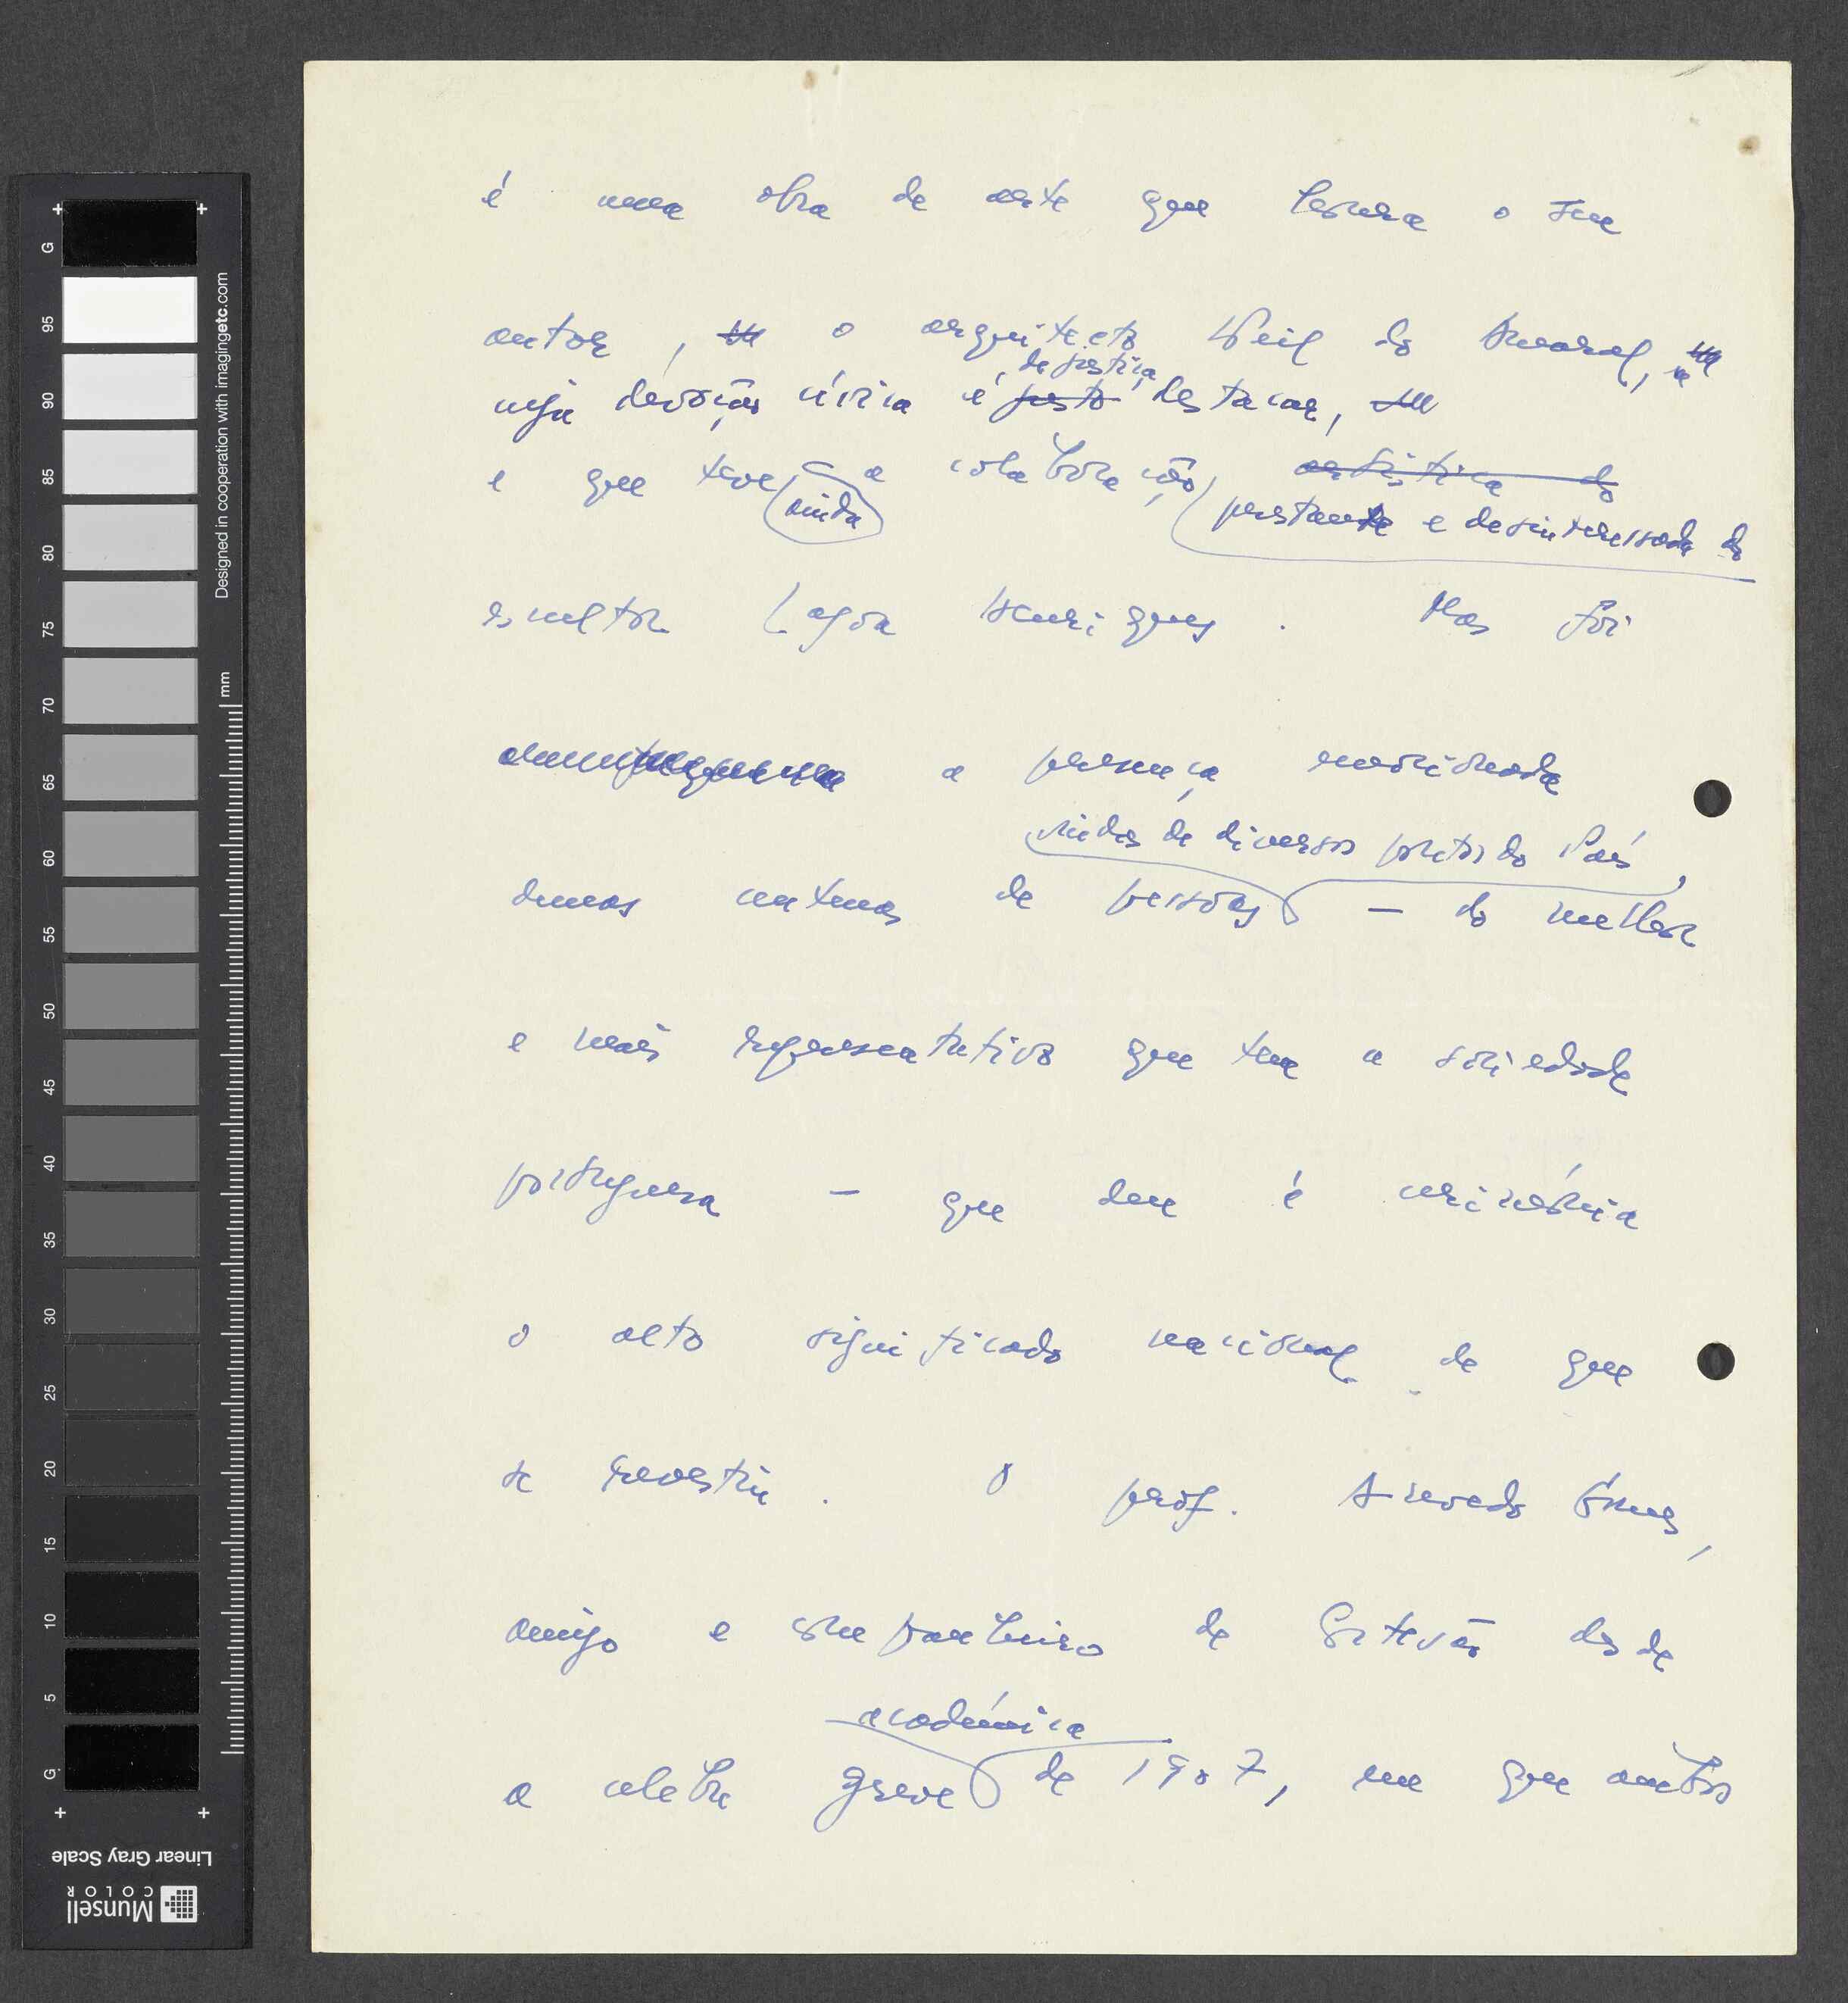 é uma obra de arte que honra o seu
autor, o arquiteto Keil do Amaral,
cuja devoção cívica é de justiça justo destacar,
e que teve ainda a colaboração artística do
prestante e desinteressada do
escultor Lagoa Henriques. Mas foi
a presença emocionada
vindas de diversos pontos do País,
dumas centenas de pessoas — do melhor
e mais representativo que tem a sociedade
portuguesa — que deu à cerimónia
o alto significado nacional de que
se revestiu. O prof. Azevedo Gomes,
amigo e companheiro de Estevão desde
académica
a celebre greve de 1907, em que ambos
G 95 90 85 80 75 70 65 60 55 50 45 40 35 30 25 20 15 10 5 G
mm
Designed in cooperation with imagingetc.com
Linear Gray Scale
Munsell
COLOR